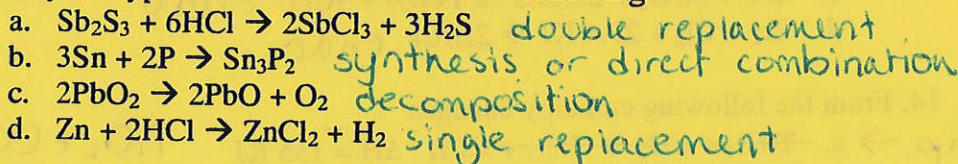 a. Sb₂S₃ + 6HCl → 2SbCl₃ + 3H₂S double replacement
b. 3Sn + 2P → Sn₃P₂ synthesis or direct combination
c. 2PbO₂ → 2PbO + O₂ decomposition
d. Zn + 2HCl → ZnCl₂ + H₂ single replacement